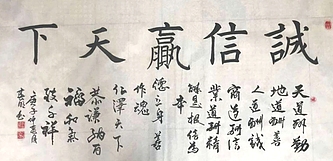 誠信贏天下
天道酬勤
地道酬善
人道酬誠
商道酬信
業道酬精
本
德立身善
作魂
澤天下
恭謹納百
福和氣
祥
庚子仲夏月